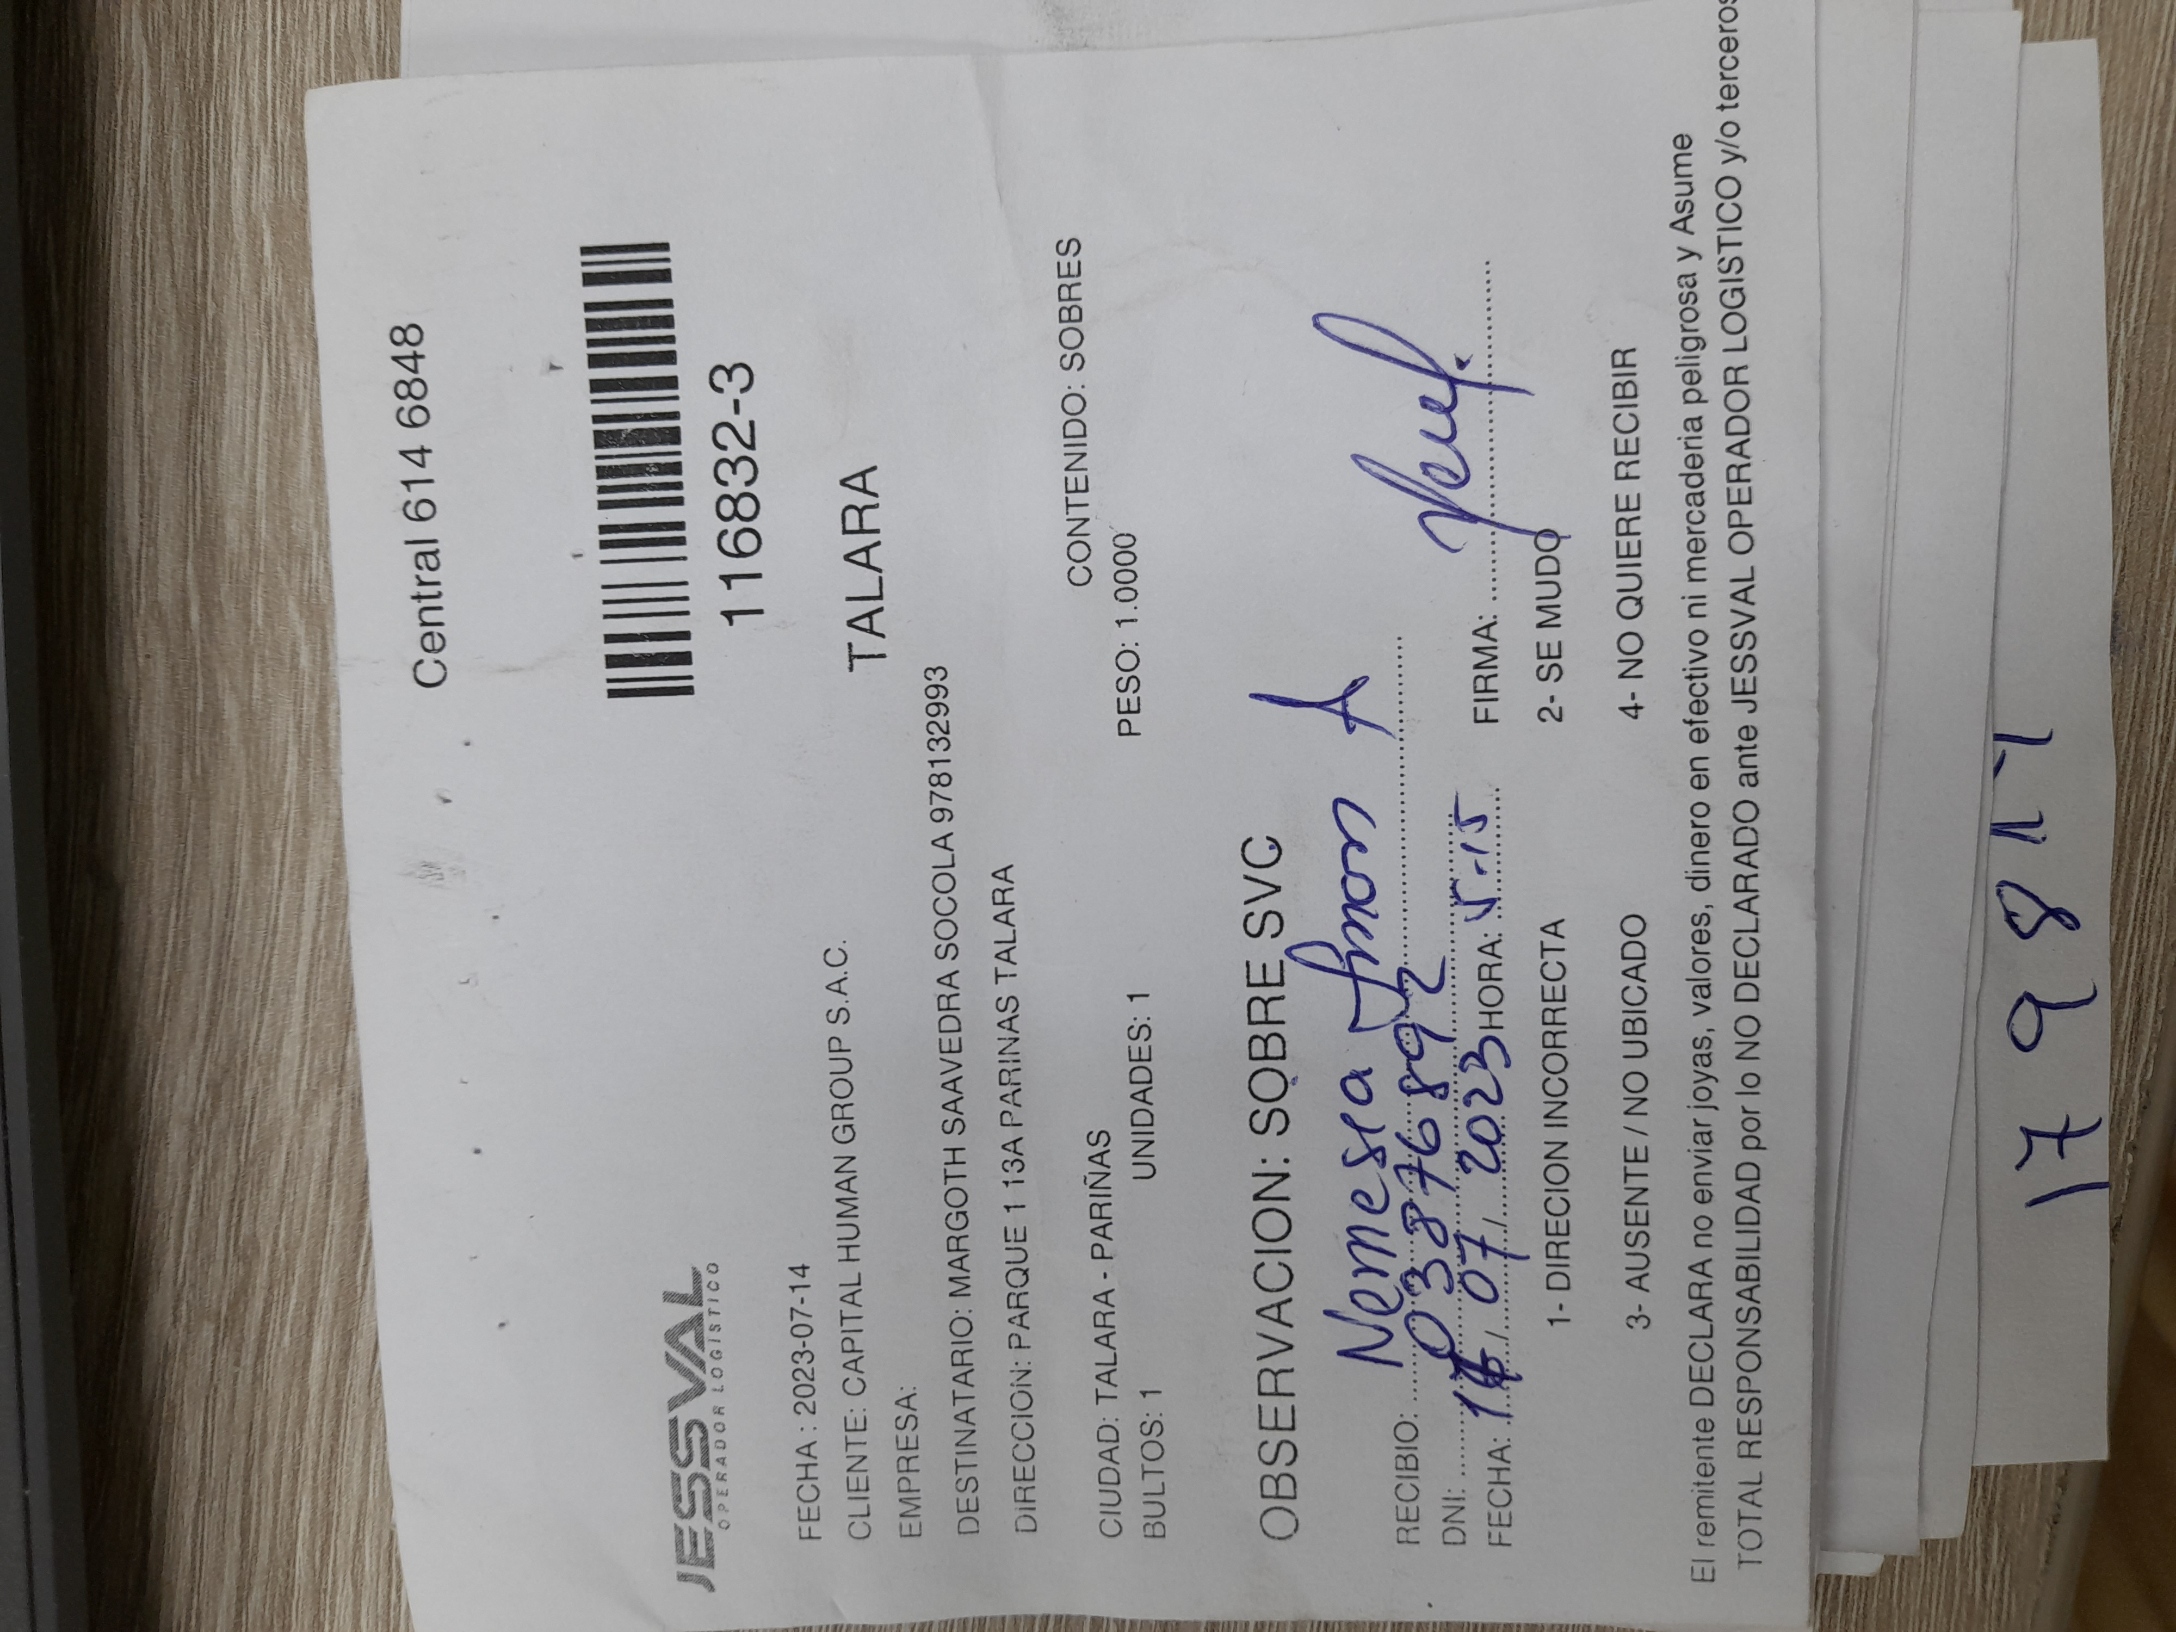 Central 614 6848
JESSVAL
OPERADOR LOGÍSTICO
116832-3
FECHA : 2023-07-14
CLIENTE: CAPITAL HUMAN GROUP S.A.C.
TALARA
EMPRESA:
DESTINATARIO: MARGOTH SAAVEDRA SOCOLA 978132993
DIRECCION: PARQUE 1 13A PARINAS TALARA
CONTENIDO: SOBRES
CIUDAD: TALARA - PARIÑAS
BULTOS: 1 UNIDADES: 1 PESO: 1.0000
OBSERVACION: SOBRE SVC
RECIBIO: Nemesia A
DNI: 03876892
FECHA: / 07 / 2023 HORA: 5-15 FIRMA:
1- DIRECION INCORRECTA 2- SE MUDO
3- AUSENTE / NO UBICADO 4- NO QUIERE RECIBIR
El remitente DECLARA no enviar joyas, valores, dinero en efectivo ni mercaderia peligrosa y Asume
TOTAL RESPONSABILIDAD por lo NO DECLARADO ante JESSVAL OPERADOR LOGISTICO y/o terceros